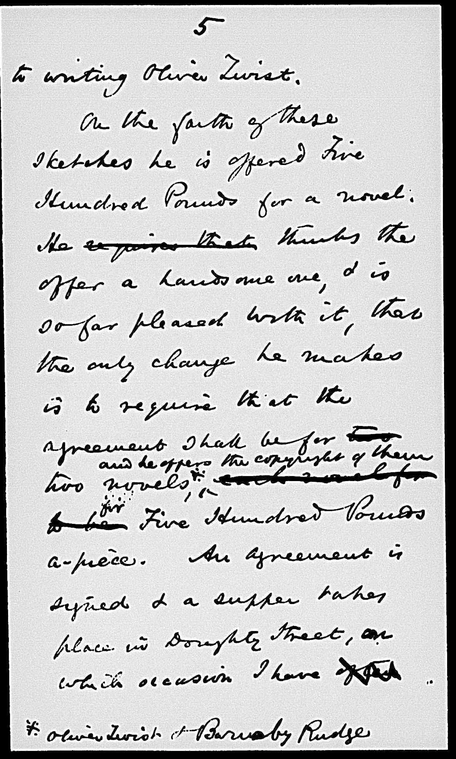 5
to writing Oliver Twist.
On the faith of these
sketches he is offered Five
Hundred Pounds for a novel.
He requires that thinks the
offer a handsome one, & is
so far pleased with it, that
the only change he makes
is to require that the
agreement shall be for two
and he offers the copyright of them
two novels,* each novel for
for
to be Five Hundred Pounds
a-piece. An agreement is
signed & a supper takes
place in Doughty Street, on
which occasion I have
* Oliver Twist & Barnaby Rudge